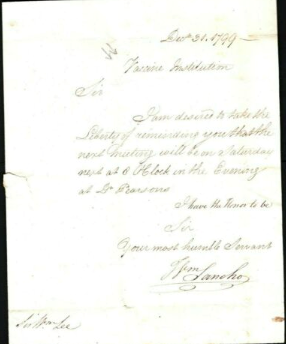 Decr 31. 1799
Vacine Institution
Sir
I am desired to take the
Liberty of reminding you that the
next meeting will be on Saturday
next at 8 O'Clock in the Evening
at Dr Pearsons
I have the Honor to be
Sir
Your most humble Servant
Wm Sancho
Sir Wm Lee